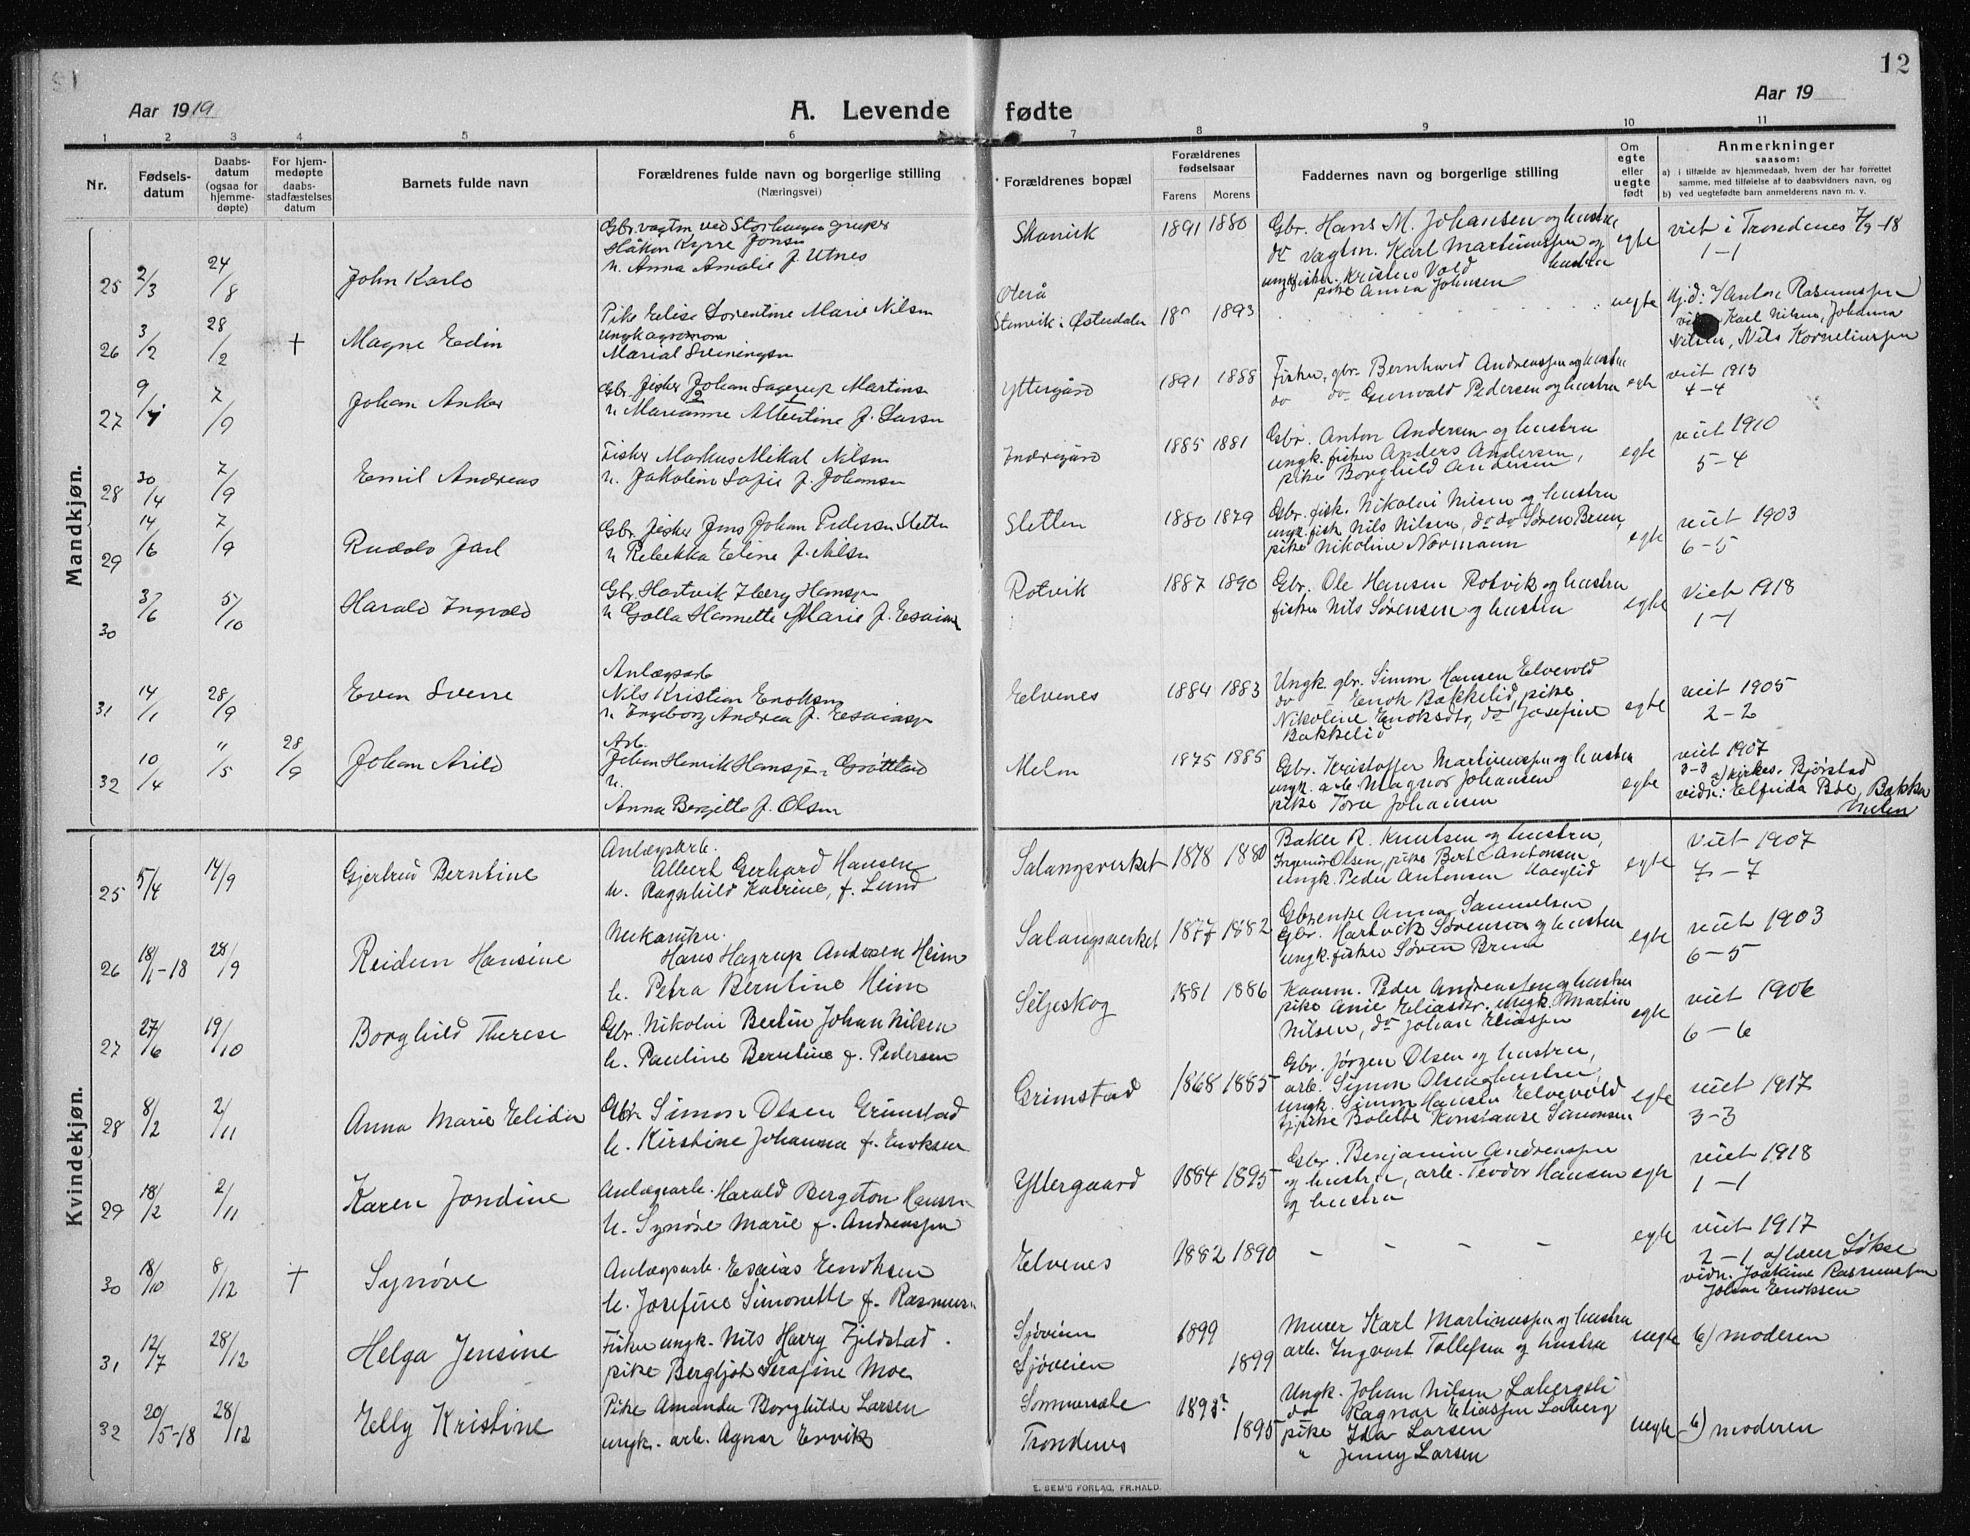 12
Aar 1919
A. Levende fødte
Aar 19
1 2 3 4 5 6 7 8 9 10 11
Nr.
Fødsels-
datum
Daabs-
datum
(ogsaa for
hjemme-
døpte)
For hjem-
medøpte
daabs-
stadfæstelses
datum
Barnets fulde navn
Forældrenes fulde navn og borgerlige stilling
(Næringsvei)
Forældrenes bopæl
Forældrenes
fødselsaar
Farens Morens
Faddernes navn og borgerlige stilling
Om
egte
eller
uegte
født
Anmerkninger
saasom:
a) i tilfælde av hjemmedaab, hvem der har forrettet
samme, med tilføielse af to daabsvidners navn, og
b) ved uegtefødte barn anmelderens navn m. v.
Mandkjøn.
25 2/3 24/8 John Karlo
Gbr. vagtm. ved Storhaugen gruber
Håkon Kyrre Jonsen
h. Anna Amalie f. Utnes
Skavvik 1891 1880
Gbr. Hans M. Johansen og hustru
do vagtm. Karl Martinussen og hustru
ungk. fisker Kristen Vold
pike Anna Johansen
egte
viet i Trondenes 7/9-18
1-1
26 3/2 28/2 † Magne Edin
Pike Elise Lorentine Marie Nilsen
Ungk agronom
Marial Sveiningsen
Stenvik i Østerdalen 18 1893
uegte
Hj.d: Anton Rasmussen
Karl Nilsen, Johanna
Nilsen, Nils Korneliussen
27 9/7 7/9 Johan Anker
Gbr. fisker Johan Lagerup Martins
h. Marianne Albertine f. Larsen
Yttergård 1891 1888
Fisker, gbr. Bernhard Andreassen og hustru
do do Gunvald Pedersen og hustru
egte
viet 1913
4-4
28 30/4 7/9 Emil Andreas
Fisker Markus Mikal Nilsen
h. Jakoline Sofie f. Johansen
Indregård 1885 1881
Gbr. Anton Andersen og hustru
ungk. fisker Anders Andersen,
pike Borghild Andersen
egte
viet 1910
5-4
29 14/6 7/9 Rudolv Jarl
Gbr. fisker Jens Johan Pedersen Sletten
h. Rebekka Eline f. Nilsen
Sletten 1880 1879
Gbr. fisk. Nikolai Nilsen og hustru
ungk. fisk Nils Nilsen, do do Søren Bruun,
pike Nikoline Normann
egte
viet 1903
6-5
30 3/6 5/10 Harald Ingvald
Gbr. Hartvik Iberg Hansen
h Golla Hannette Marie f. Esaias
Rotvik 1887 1890
Gbr. Ole Hansen Rotvik og hustru
fisker Nils Sørensen og hustru
egte
Viet 1918
1-1
31 14/1 28/9 Even Sverre
Anlægsarb
Nils Kristian Enoksen
h. Ingeborg Andrea f. Esaiassen
Elvenes 1884 1883
Ungk. gbr. Simon Hansen Elvevold
do Enok Bakkelid, pike
Nikoline Enoksdtr, do Josefine
Bakkelid
egte
viet 1905
2-2
32 10/4 "/5 28/9 Johan Arild
Arb.
Johan Henrik Hansen Grøttland
h.
Anna Bergitte f. Olsen
Melen 1875 1885
Gbr. Kristoffer Martinussen og hustru
ungk. arb. Magnor Johansen
pike Tora Johansen
egte
viet 1907
3-3 a) kirkes. Bjørstad
vidn: Elfrida Boe, Bakka
Melen
Kvindekjøn.
25 5/4 14/9 Gjertrud Berntine
Anlægsarb.
Albert Gerhard Hansen
h. Ragnhild Katrine, f. Lund
Salangsverket 1878 1880
Baker R. Knutsen og hustru,
Ingeniør Olsen, pike Berte Antonsen
ungk. Peder Antonsen Haeglid
egte
Viet 1907
7-7
26 18/1-18 28/9 Reidun Hansine
Mekaniker.
Hans Hagrup Andersen Heim
h. Petra Berntine Heim
Salangsverket 1877 1882
Gbrenke Anna Samuelsen
Gbr. Hartvik Sørensen og hustru
ungk. fisker Søren Bruun
egte
viet 1903
6-5
27 27/6 19/10 Borghild Therese
Gbr. Nikolai Bertin Johan Nilsen
h. Pauline Berntine f. Pedersen
Seljeskog 1881 1886
Kaarm. Peder Andreassen og hustru
pike Anie Eliasdtr. ungk. Martin
Nilsen, do Johan Eliassen
egte
viet 1906
6-6
28 8/2 2/11 Anna Marie Elida
Gbr. Simon Olsen Grimstad
h. Kirstine Johanna f. Enoksen
Grimstad 1868 1885
Gbr. Jørgen Olsen og hustru,
arb. Simon Olsen og hustru,
ungk. Simon Hansen Elvevold
pike Bolette Konstanse Simonsen
egte
viet 1917
3-3
29 18/2 2/11 Karen Jondine
Anlægsarb. Harald Bergeton Hansen
h. Synøve Marie f. Andreassen
Yttergaard 1884 1895
Gbr. Benjamin Andreassen
og hustru, arb. Teodor Hansen
og hustru
egte
viet 1918
1-1
30 18/10 8/12 † Synøve
Anlægsarb. Esaias Enoksen
h. Josefine Simonette f. Rasmus.
Elvenes 1882 1890
- - - -
egte
viet 1917
2-1 a) lærer Løkse
vidn. Joakime Rasmussen
Johan Enoksen
31 12/7 28/12 Helga Jensine
Fisker ungk. Nils Harry Fjeldstad.
pike Bergljot Serafine Moe
Sjøveien 1899
Sjøveien 1899
Murer Karl Martinussen og hustru
arb. Ingvart Tollefsen og hustru
uegte
b) moderen
32 20/5-18 28/12 Elly Kristine
Pike Amanda Borghilde Larsen
ungk. arb. Agnar Ervik
Sommersæte
Trondenes 1895
Ungk. Johan Nilsen Labergsli
do Ragnar Eliassen Laberg
pike Ida Larsen
" Jenny Larsen
uegte
b) moderen
E. SEM'S FORLAG, FR.HALD.